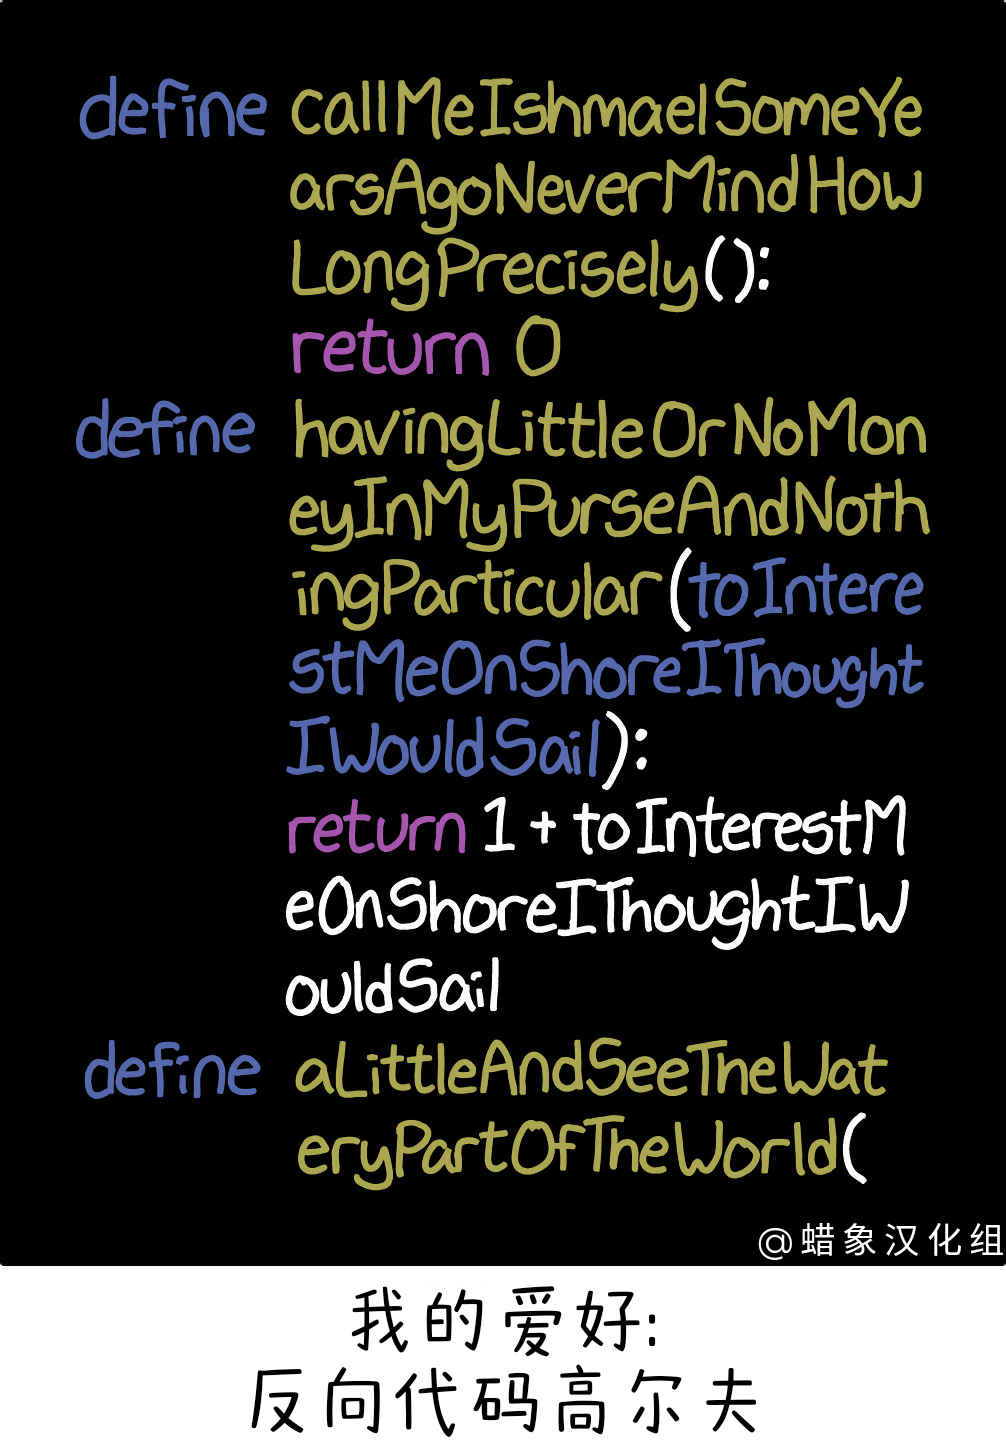 define callMeIshmaelSomeYe
arsAgoNeverMindHow
LongPrecisely():
return 0
define havingLittleOrNoMon
eyInMyPurseAndNoth
ingParticular(toIntere
stMeOnShoreIThought
IWouldSail):
return 1 + toInterestM
eOnShoreIThoughtIW
ouldSail
define aLittleAndSeeTheWat
eryPartOfTheWorld(
@蜡象汉化组
我的爱好:
反向代码高尔夫